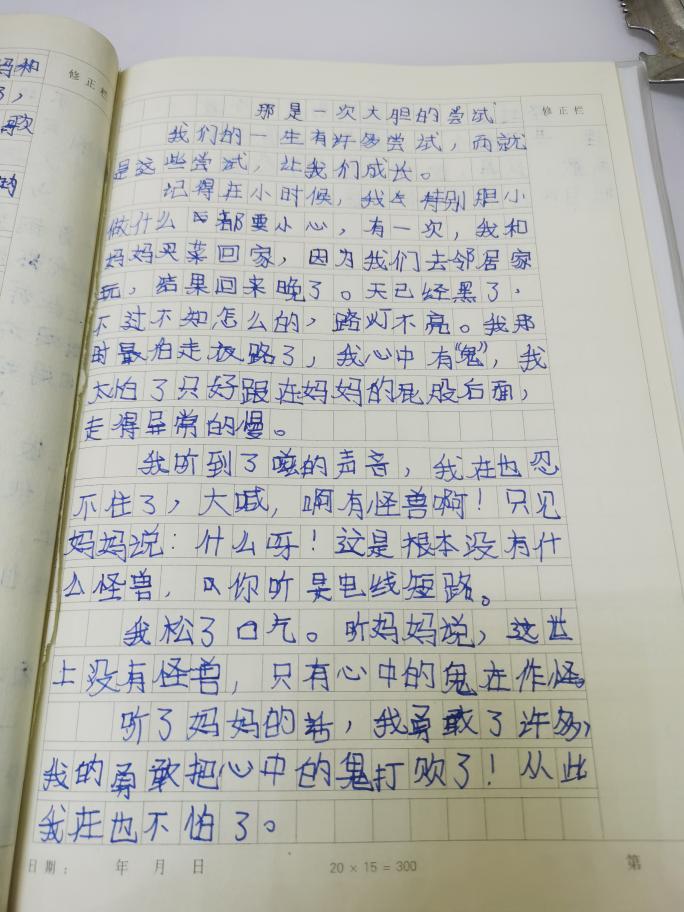 妈和
了，
歌
的
修正栏
修正栏
那是一次大胆的尝试
我们的一生有许多尝试，而就
是这些尝试，让我们成长。
记得在小时候，我特别胆小
做什么都要小心，有一次，我和
妈妈买菜回家，因为我们去邻居家
玩，结果回来晚了。天已经黑了，
不过不知怎么的，路灯不亮。我那
时最怕走夜路了，我心中有“鬼”，我
太怕了只好跟在妈妈的屁股后面，
走得异常的慢。
我听到了嗞的声音，我在也忍
不住了，大喊，啊有怪兽啊！只见
妈妈说：什么呀！这是根本没有什
么怪兽，只你听是电线短路。
我松了口气。听妈妈说，这世
上没有怪兽，只有心中的鬼在作怪。
听了妈妈的话，我勇敢了许多，
我的勇敢把心中的鬼打败了！从此
我在也不怕了。
日期： 年 月 日
20 × 15 = 300
第